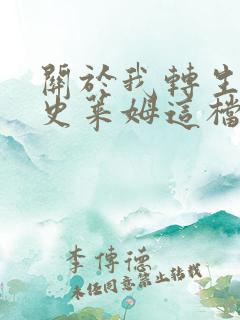 關於我轉生
史萊姆這檔
李傳德
未經同意禁止轉載